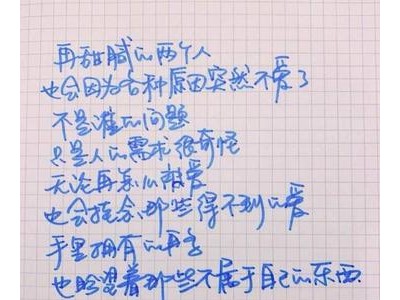 再甜腻的两个人
也会因为各种原因突然不爱了
不是谁的问题
只是人的需求很奇怪
无论再怎么被爱
也会掂念那些得不到的爱
手里拥有的再多
也盼望着那些不属于自己的东西